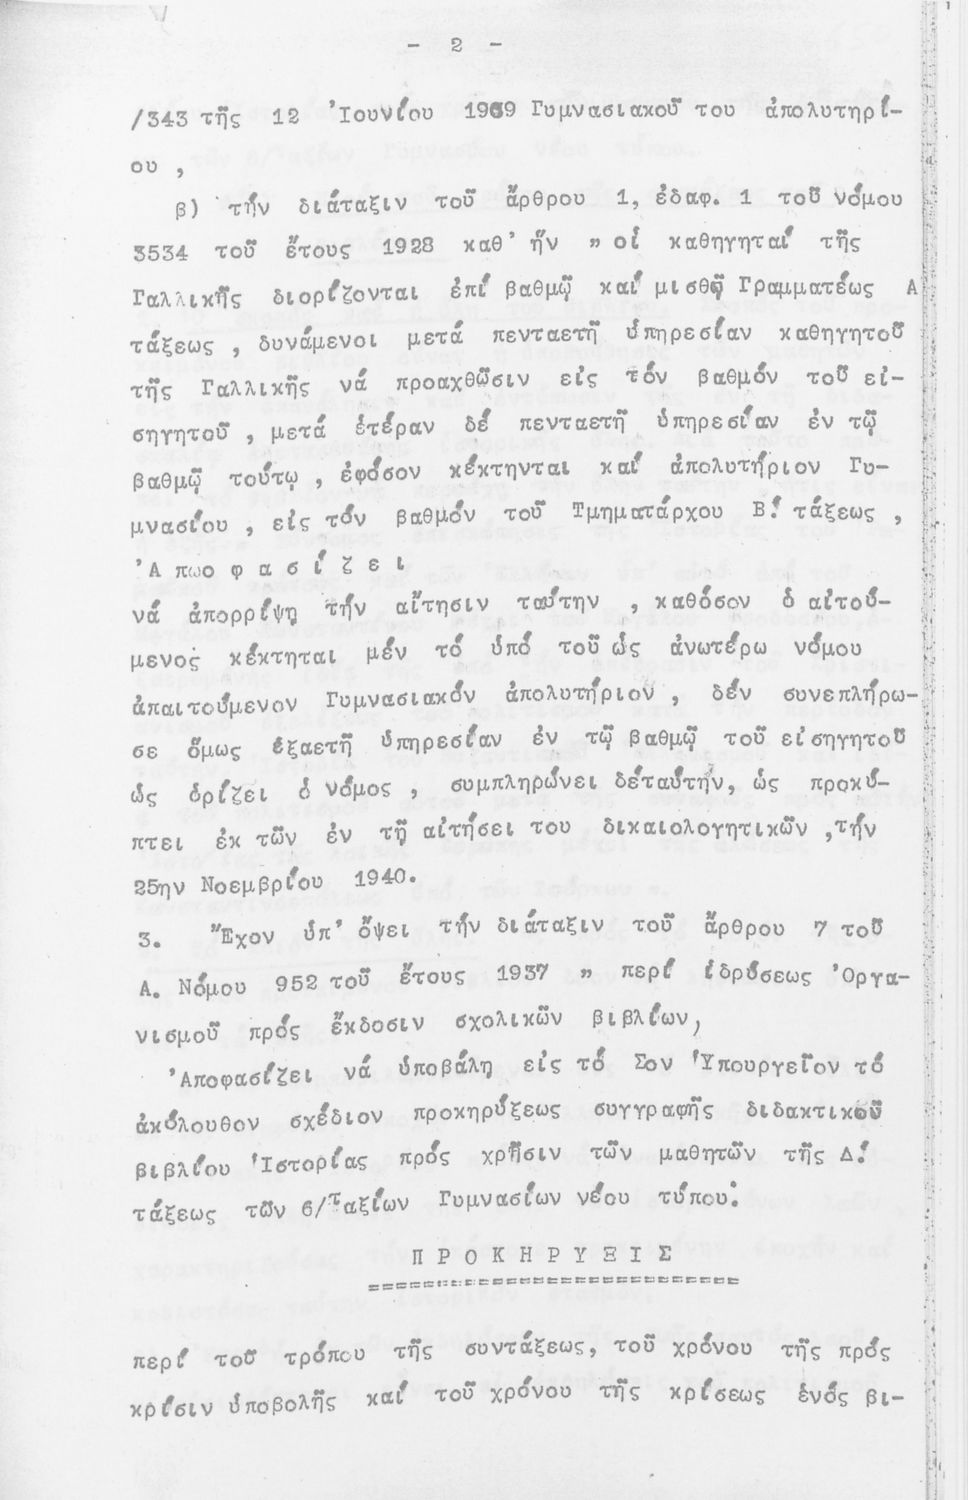 - 2 -
/343 τῆς 12 Ἰουνίου 1969 Γυμνασιακοῦ του ἀπολυτηρί-
ου ,
β) τήν διάταξιν τοῦ ἄρθρου 1, ἐδαφ. 1 τοῦ νόμου
3534 τοῦ ἔτους 1928 καθ' ἥν " οἱ καθηγηταί τῆς
Γαλλικῆς διορίζονται ἐπί βαθμῷ καί μισθῷ Γραμματέως Α
τάξεως , δυνάμενοι μετά πενταετῆ ὑπηρεσίαν καθηγητοῦ
τῆς Γαλλικῆς νά προαχθῶσιν εἰς τόν βαθμόν τοῦ εἰ-
σηγητοῦ , μετά ἑτέραν δέ πενταετῆ ὑπηρεσίαν ἐν τῷ
βαθμῷ τούτῳ , ἐφόσον κέκτηνται καί ἀπολυτήριον Γυ-
μνασίου , εἰς τόν βαθμόν τοῦ Τμηματάρχου Β! τάξεως ,
'Α πωο φ α σ ί ζ ε ι
νά ἀπορρίψῃ τήν αἴτησιν ταύτην , καθόσον ὁ αἰτού-
μενος κέκτηται μέν τό ὑπό τοῦ ὡς ἀνωτέρω νόμου
ἀπαιτούμενον Γυμνασιακόν ἀπολυτήριον , δέν συνεπλήρω-
σε ὅμως ἑξαετῆ ὑπηρεσίαν ἐν τῷ βαθμῷ τοῦ εἰσηγητοῦ
ὡς ὁρίζει ὁ νόμος , συμπληρώνει δέταύτην, ὡς προκύ-
πτει ἐκ τῶν ἐν τῇ αἰτήσει του δικαιολογητικῶν ,τήν
25ην Νοεμβρίου 1940.
3. Ἔχον ὑπ' ὄψει τήν διάταξιν τοῦ ἄρθρου 7 τοῦ
Α. Νόμου 952 τοῦ ἔτους 1937 " περί ἱδρύσεως Ὀργα-
νισμοῦ πρός ἔκδοσιν σχολικῶν βιβλίων,
Ἀποφασίζει νά ὑποβάλῃ εἰς τό Σον Ὑπουργεῖον τό
ἀκόλουθον σχέδιον προκηρύξεως συγγραφῆς διδακτικοῦ
βιβλίου Ἱστορίας πρός χρῆσιν τῶν μαθητῶν τῆς Δ!
τάξεως τῶν 6/ταξίων Γυμνασίων νέου τύπου:
Π Ρ Ο Κ Η Ρ Υ Ξ Ι Σ
===========================
περί τοῦ τρόπου τῆς συντάξεως, τοῦ χρόνου τῆς πρός
κρίσιν ὑποβολῆς καί τοῦ χρόνου τῆς κρίσεως ἑνός βι-